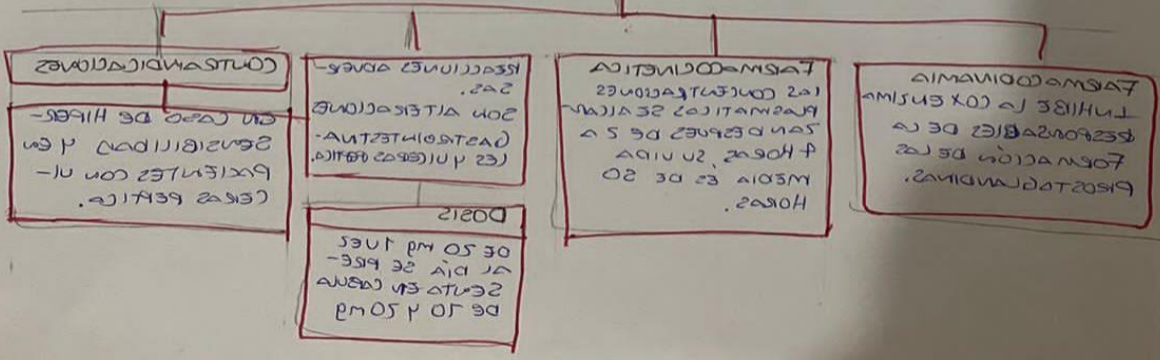 FARMACODINAMIA
INHIBE LA COX ENZIMA
RESPONSABLES DE LA
FORMACIÓN DE LAS
PROSTAGLANDINAS.
FARMACOCINETICA
LAS CONCENTRACIONES
PLASMATICAS SE ALCAN-
ZAN DESPUES DE 5 A
7 HORAS. SU VIDA
MEDIA ES DE 50
HORAS.
REACCIONES ADVER-
SAS.
SON ALTERACIONE
GASTROINTESTINA-
LES Y ULCERAS PEPTICA.
DOSIS
DE 20 mg 1 VES
AL DIA SE PRE-
SENTA EN CAPSULA
DE 10 Y 20 mg
CONTRAINDICACIONES
EN CASO DE HIPER-
SENSIBILIDAD Y EN
PACIENTES CON UL-
CERAS PEPTICA.